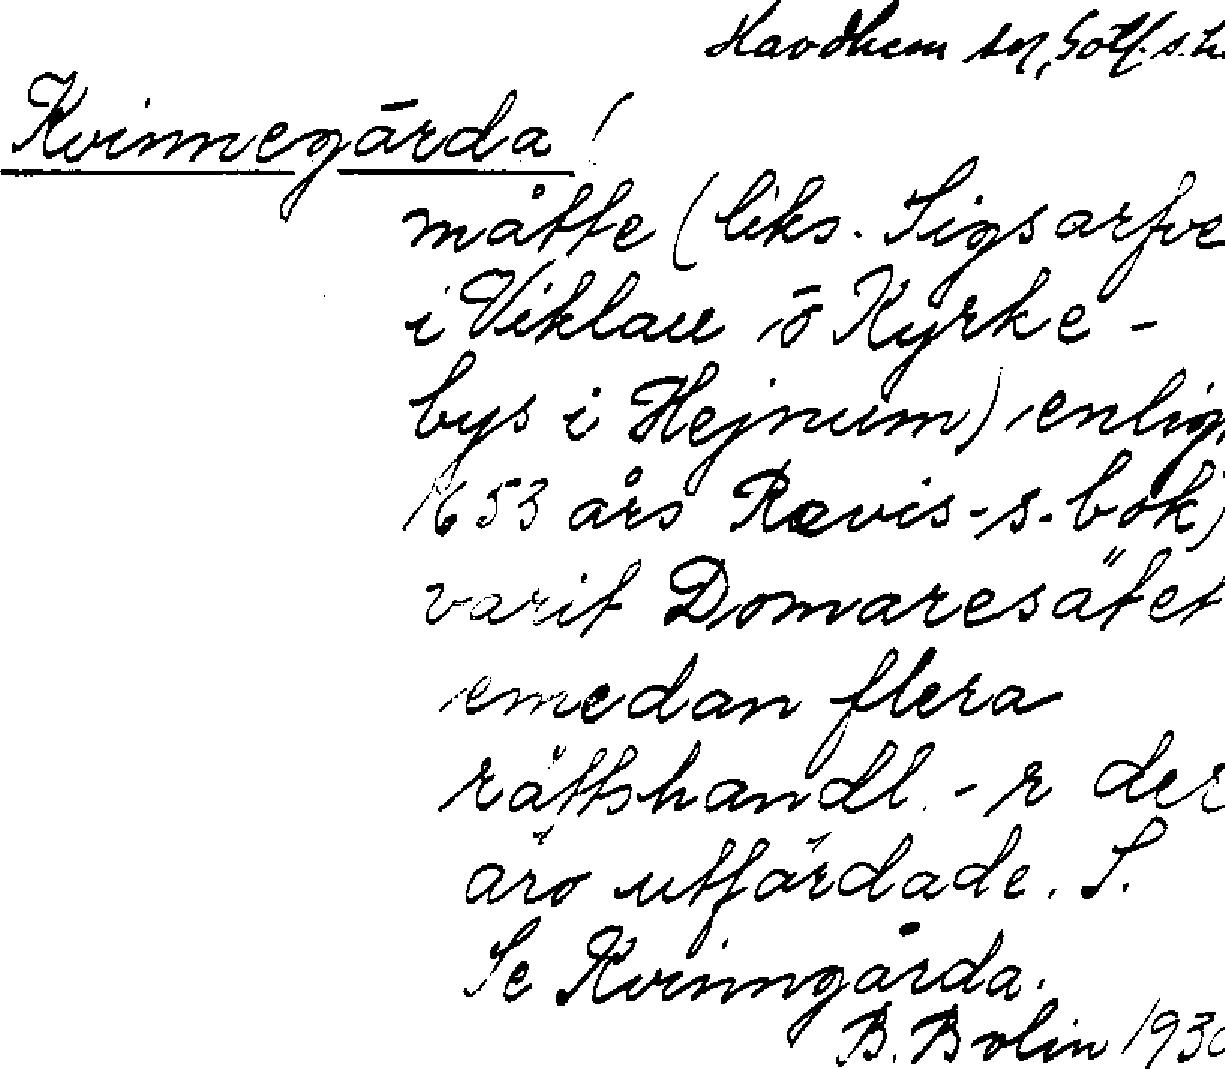 Havdhem sn, Gotl. s.
Kvinnegārda!
måtte (liks. Sigsarfve
i Viklau ō Kyrke-
bys i Hejnum) enlig
1653 års Revis-s. bok,
varit Domaresätet
emedan flera
rättshandl. -r der
äro utfärdade. S.
Se Kvinngārda.
B. Bolin 193